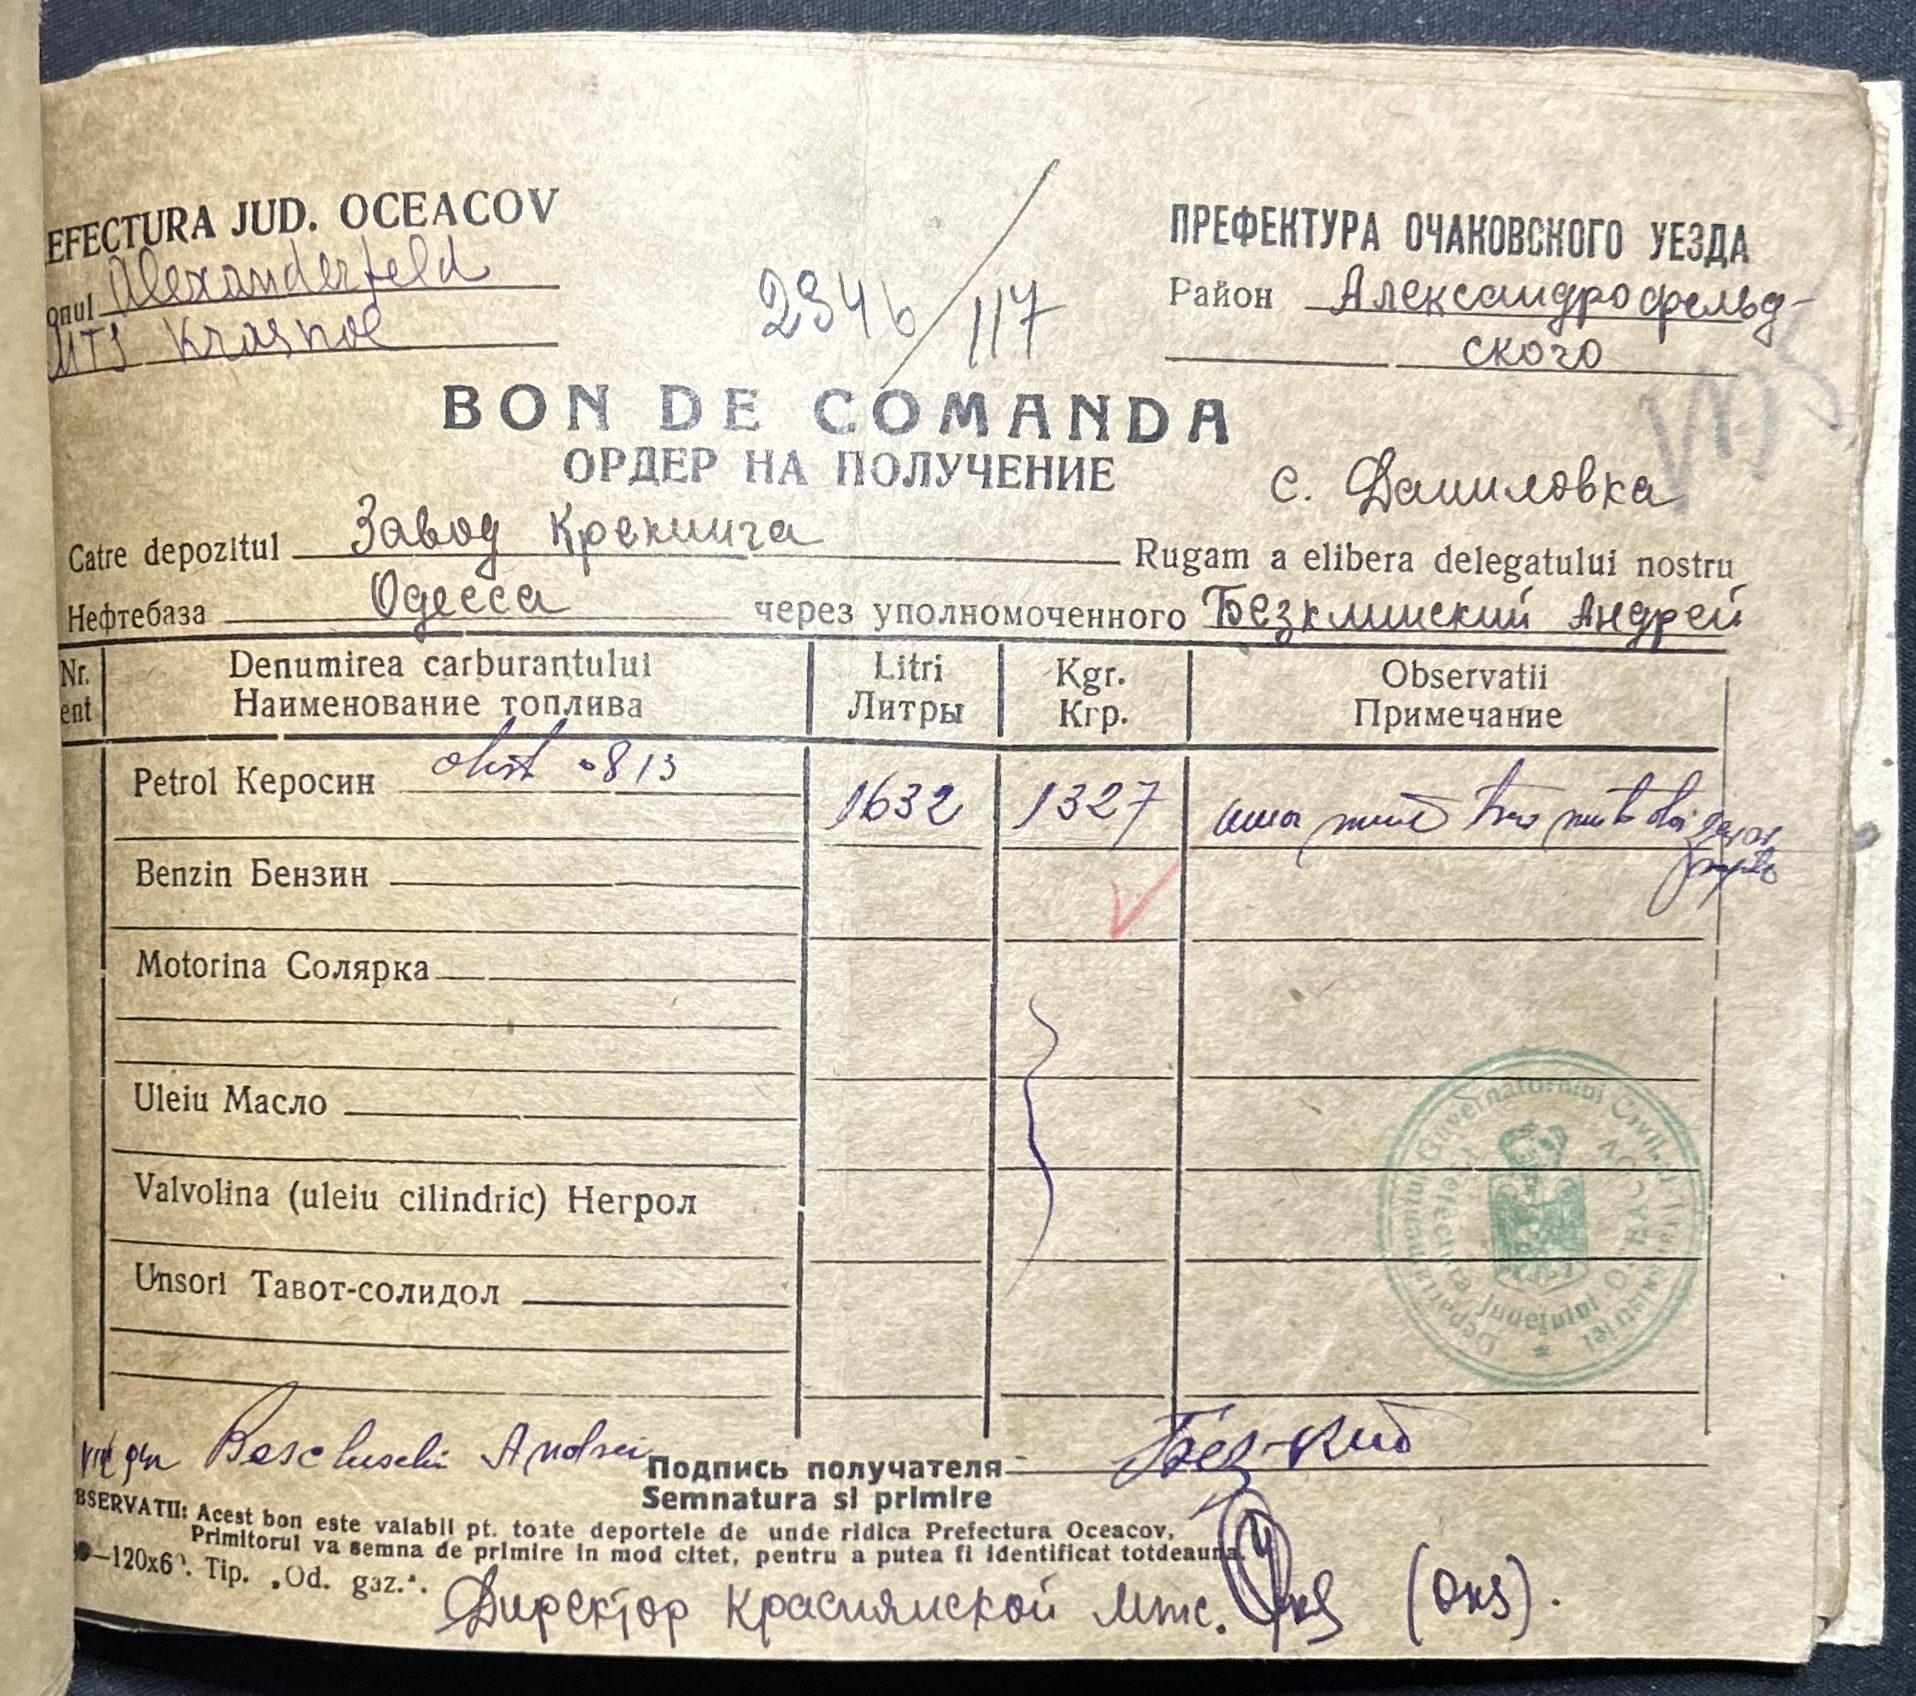 EFECTURA JUD. OCEACOV
onul Alexanderfeld
MTS Krasnoe
2346/117
ПРЕФЕКТУРА ОЧАКОВСКОГО УЕЗДА
Район Александрофельд-
ского
BON DE COMANDA
ОРДЕР НА ПОЛУЧЕНИЕ
с. Даниловка
Catre depozitul Завод Крекинга Rugam a elibera delegatului nostru
Нефтебаза Одесса через уполномоченного Безклинский Андрей
Nr. Denumirea carburantului Litri Kgr. Observatii
ent Наименование топлива Литры Кгр. Примечание
Petrol Керосин 813 1632 1327 una mie trei sute
Benzin Бензин
Motorina Солярка
Uleiu Масло
Valvolina (uleiu cilindric) Негрол
Unsori Тавот-солидол
Departamentul Guvernatorului Civil al Transnistriei
Prefectura Județului OCEACOV
Andrei
Подпись получателя
Semnatura si primire
BSERVATII: Acest bon este valabil pt. toate deportele de unde ridica Prefectura Oceacov,
Primitorul va semna de primire in mod citet, pentru a putea fi identificat totdeauna.
—120x60. Tip. „Od. gaz.".
Директор Краснянской мтс. (Окс).